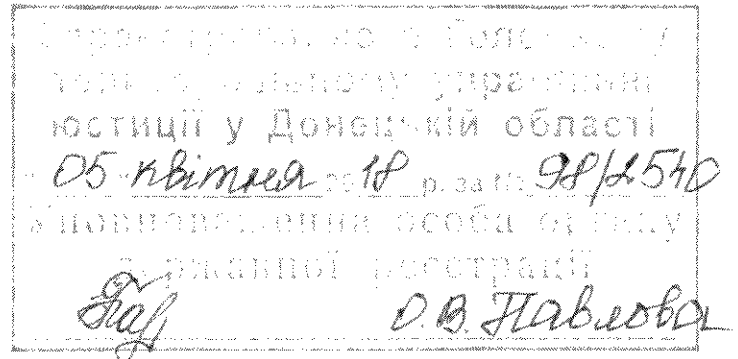 Зареєстровано в Головному
територіальному управлінні
юстиції у Донецькій області
"05" квітня 2018 р. за № 98/2540
Уповноважена особа органу
державної реєстрації
О.В. Павлова